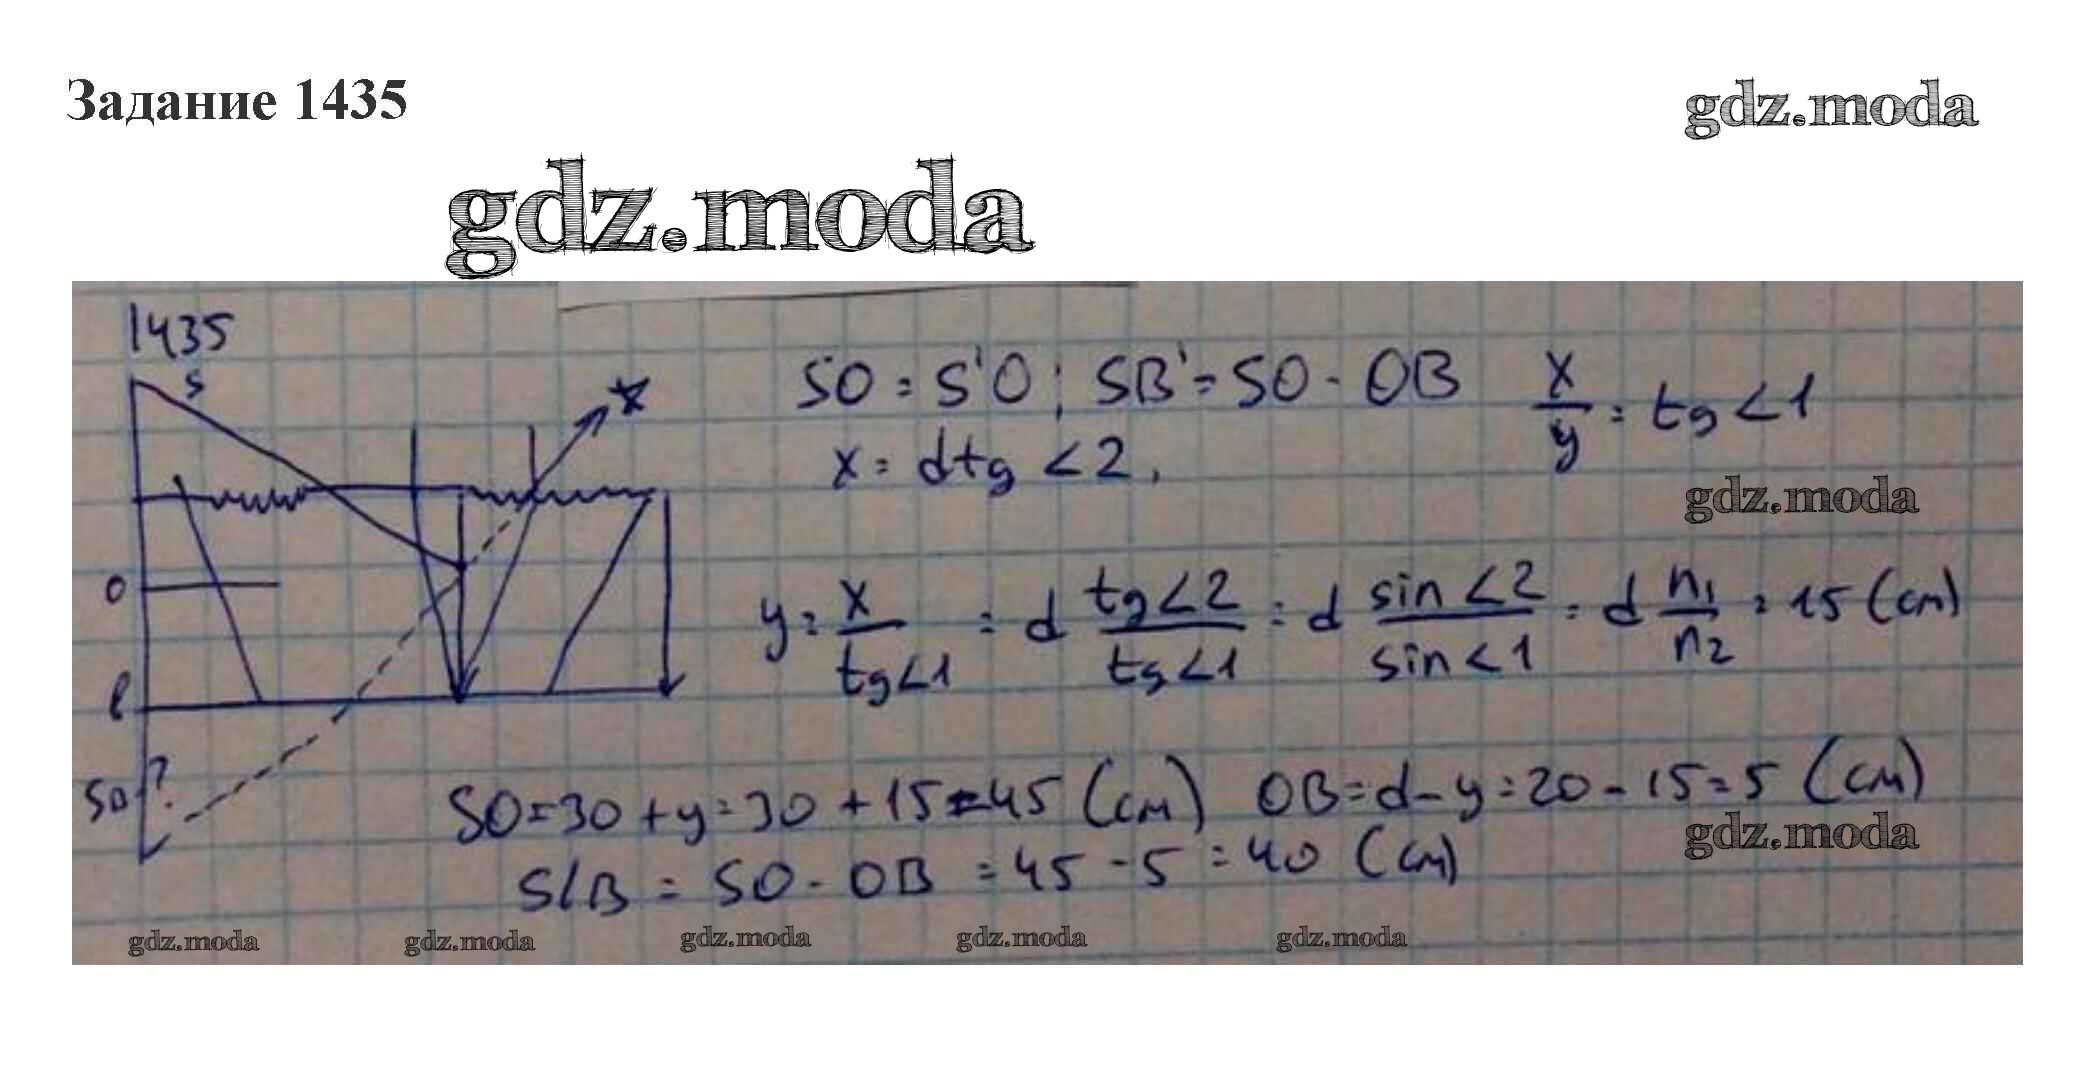 Задание 1435
gdz.moda
gdz.moda
1435
S
x
SO = S'O ; SB' = SO - OB
x/y = tg<1
x = dtg <2,
gdz.moda
O
y = x/tg<1 = d tg<2/tg<1 = d sin<2/sin<1 = d n1/n2 = 15 (см)
l
SO-?
SO = 30 + y = 30 + 15 = 45 (см) OB = d - y = 20 - 15 = 5 (см)
gdz.moda
S/B = SO - OB = 45 - 5 = 40 (см)
gdz.moda gdz.moda gdz.moda gdz.moda gdz.moda